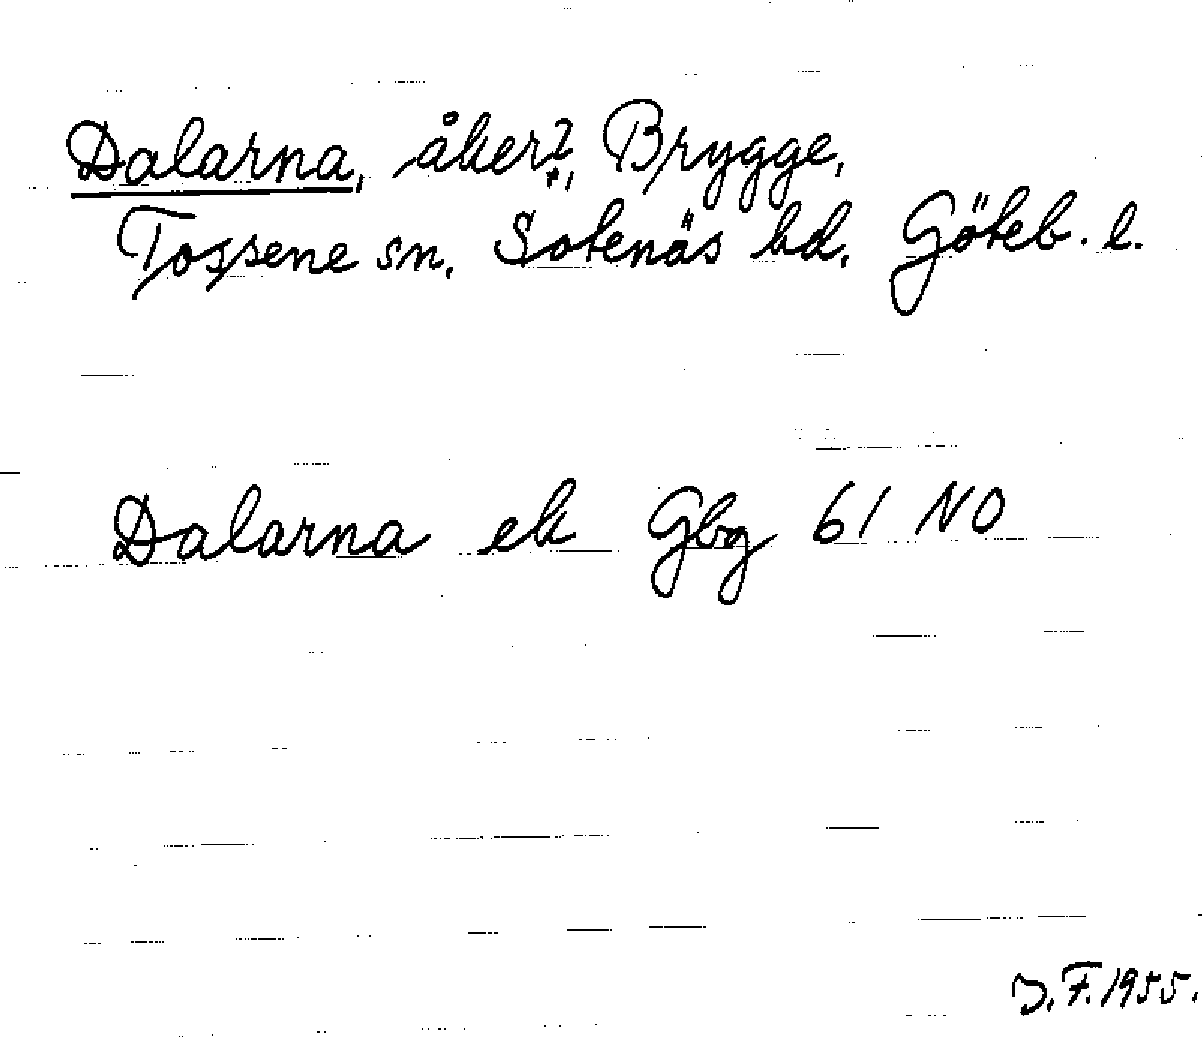 Dalarna, åker?, Brygge,
Tossene sn. Sotenäs hd. Göteb. l.
Dalarna ek Gbg 61 NO
J. F. 1955.